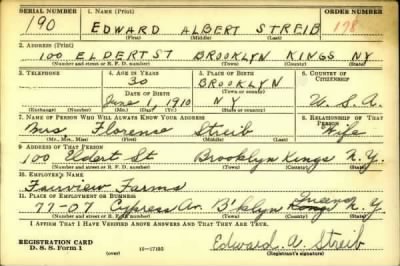 SERIAL NUMBER 1. NAME (Print) ORDER NUMBER
190 EDWARD ALBERT STREIB 178
(First) (Middle) (Last)
2. ADDRESS (Print)
100 ELDERT ST BROOKLYN KINGS NY
(Number and street or R. F. D. number) (Town) (County) (State)
3. TELEPHONE 4. AGE IN YEARS 5. PLACE OF BIRTH 6. COUNTRY OF CITIZENSHIP
30 BROOKLYN
DATE OF BIRTH (Town or county)
June 1, 1910 NY U.S.A.
(Exchange) (Number) (Mo.) (Day) (Yr.) (State or country)
7. NAME OF PERSON WHO WILL ALWAYS KNOW YOUR ADDRESS 8. RELATIONSHIP OF THAT PERSON
Mrs Florence Streib Wife
(Mr., Mrs., Miss) (First) (Middle) (Last)
9. ADDRESS OF THAT PERSON
100 Eldert St Brooklyn Kings N.Y.
(Number and street or R. F. D. number) (Town) (County) (State)
10. EMPLOYER'S NAME
Fairview Farms
11. PLACE OF EMPLOYMENT OR BUSINESS Queens
77-07 Cypress Av. B'klyn Kings N.Y.
(Number and street or R. F. D. number) (Town) (County) (State)
I AFFIRM THAT I HAVE VERIFIED ABOVE ANSWERS AND THAT THEY ARE TRUE.
REGISTRATION CARD
D. S. S. Form 1 16-17105 Edward A. Streib
(over) (Registrant's signature)